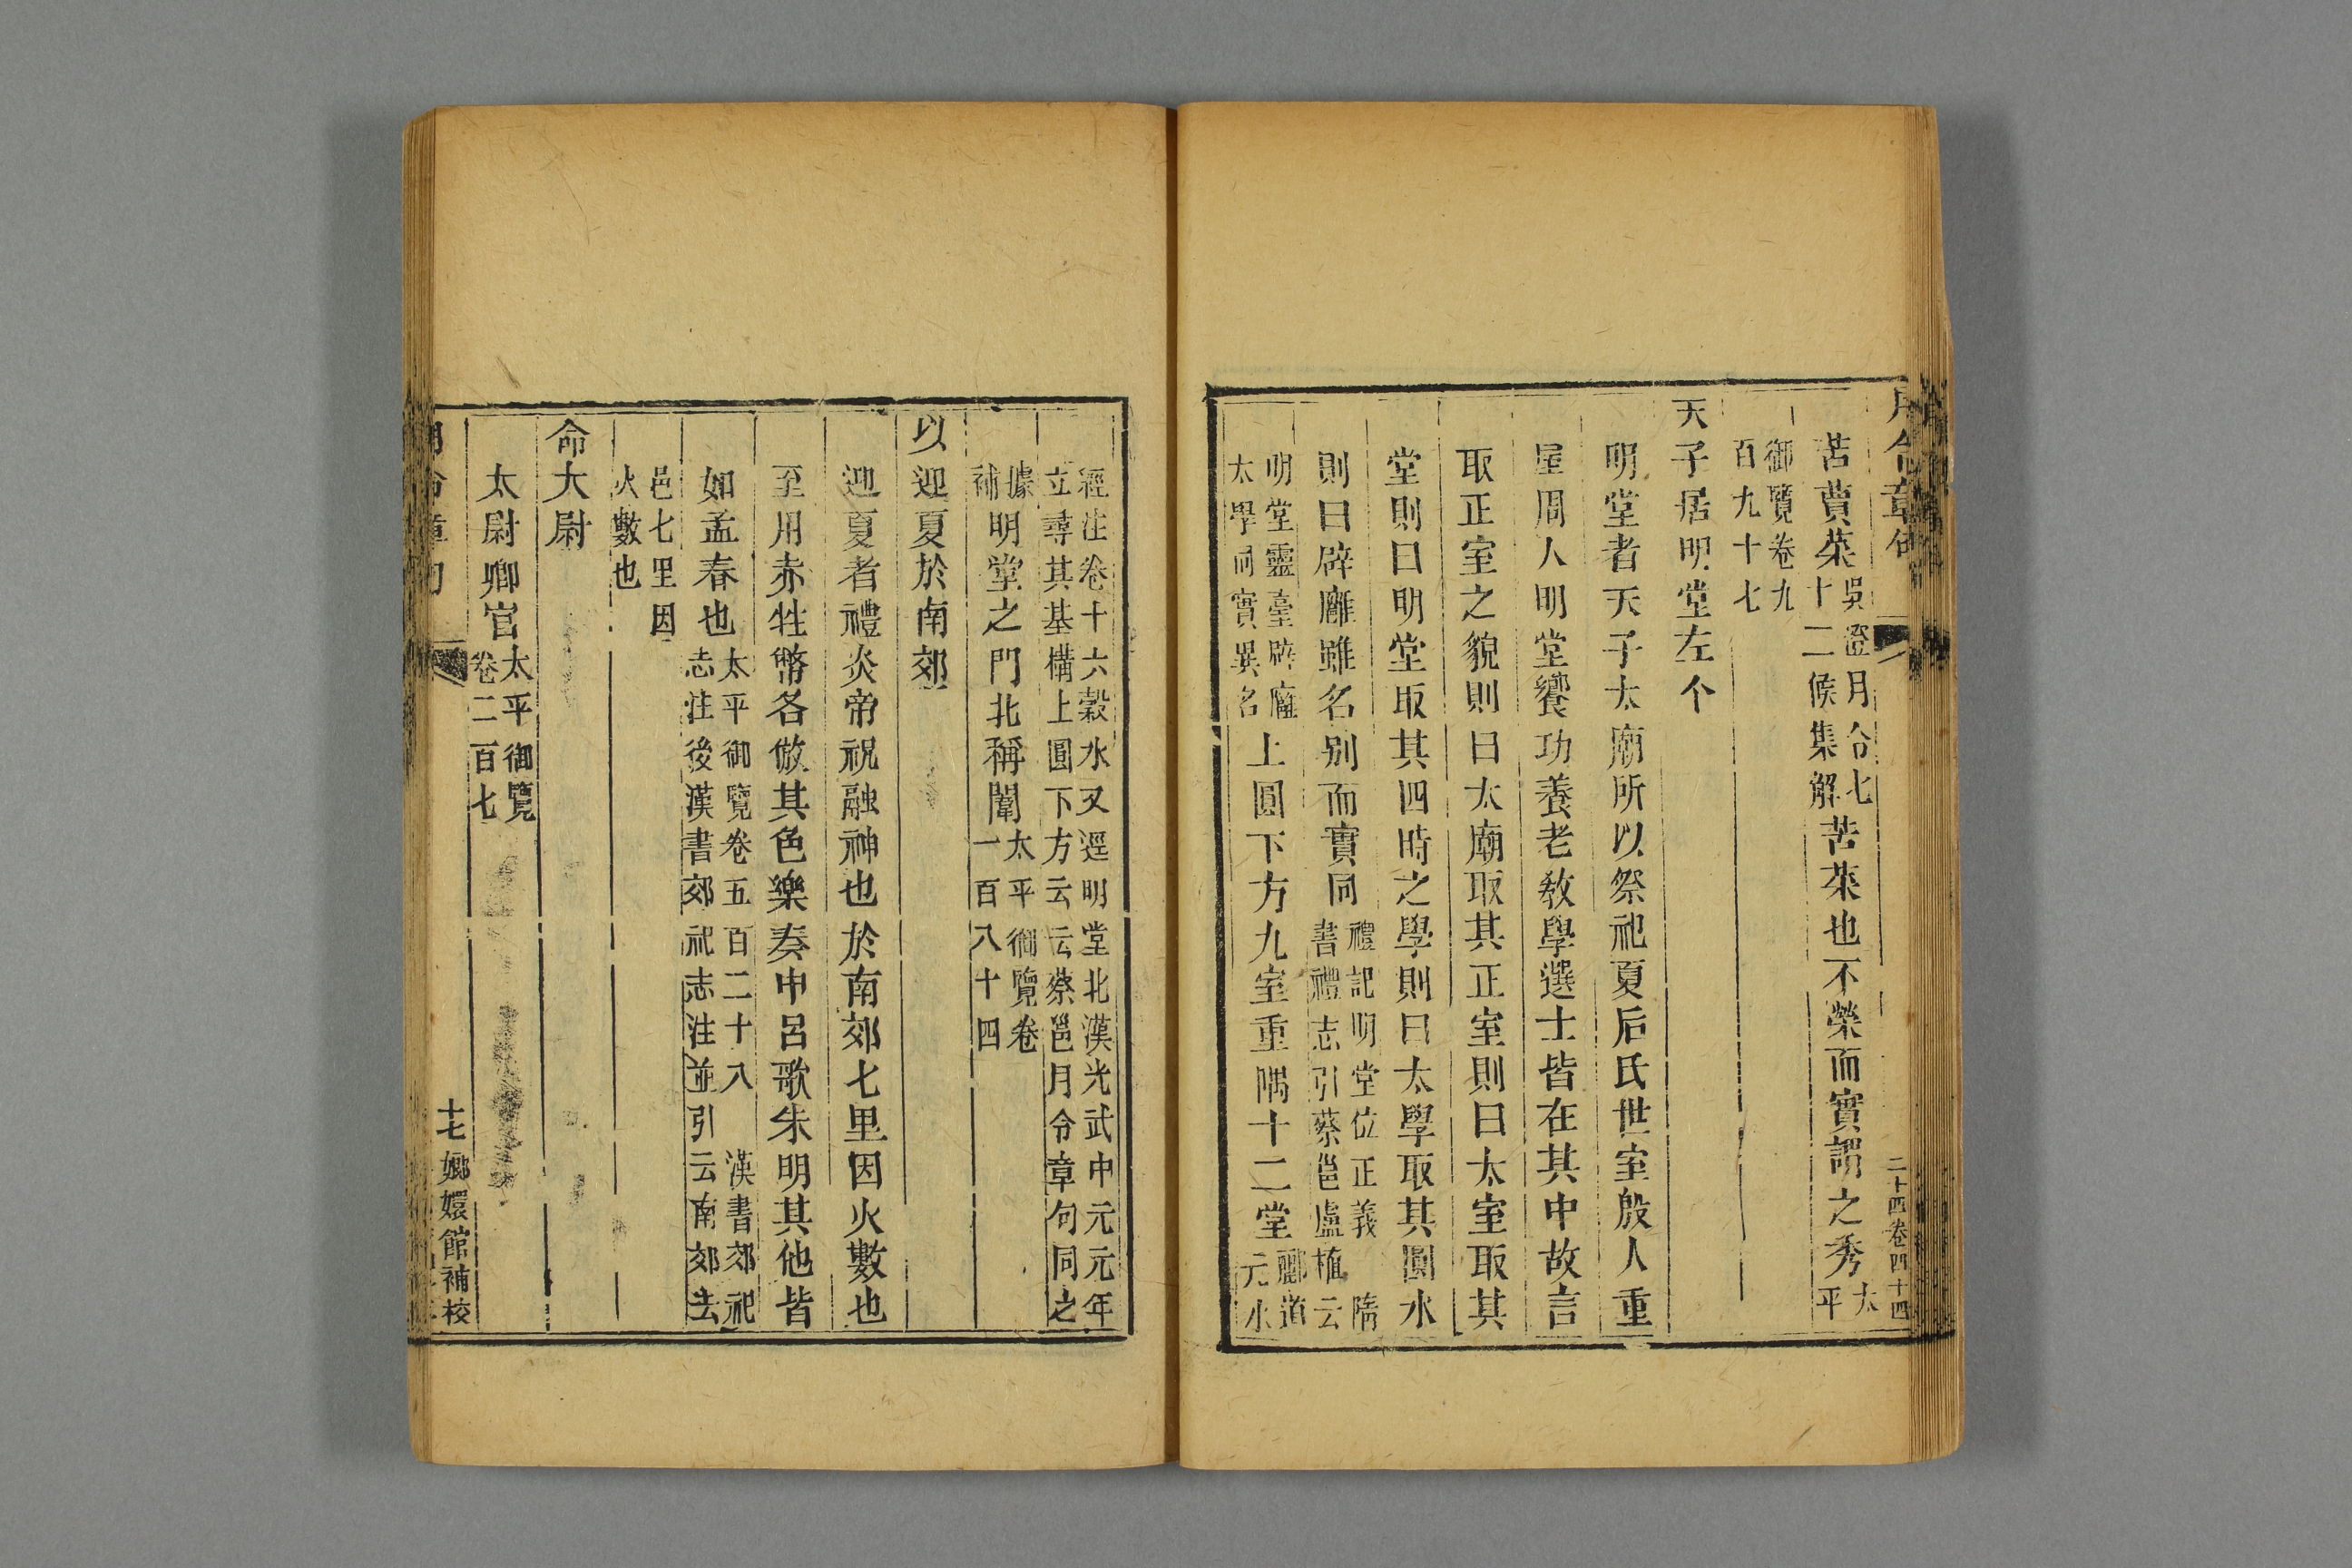 月令章句
二十四卷四十四
苦蕒菜吳澄月令七
十二候集解苦菜也不榮而實謂之秀太平
御覽卷九
百九十七
天子居明堂左个
明堂者天子太廟所以祭祀夏后氏世室殷人重
屋周人明堂饗功養老敎學選士皆在其中故言
取正室之貌則曰太廟取其正室則曰太室取其
堂則曰明堂取其四時之學則曰太學取其圜水
則曰辟廱雖名別而實同禮記明堂位正義 隋
書禮志引蔡邕盧植云
明堂靈臺辟廱
太學同實異名上圓下方九室重隅十二堂酈道
元水
經注卷十六穀水又逕明堂北漢光武中元元年
立尋其基構上圓下方云云蔡邕月令章句同之
據明堂之門北稱闈太平御覽卷
補一百八十四
以迎夏於南郊
迎夏者禮炎帝祝融神也於南郊七里因火數也
至用赤牲幣各倣其色樂奏中呂歌朱明其他皆
如孟春也太平御覽卷五百二十八 漢書郊祀
志注後漢書郊祀志注並引云南郊去
邑七里因
火數也
命大尉
太尉卿官太平御覽
卷二百七
月令章句
十七
嫏嬛館補校